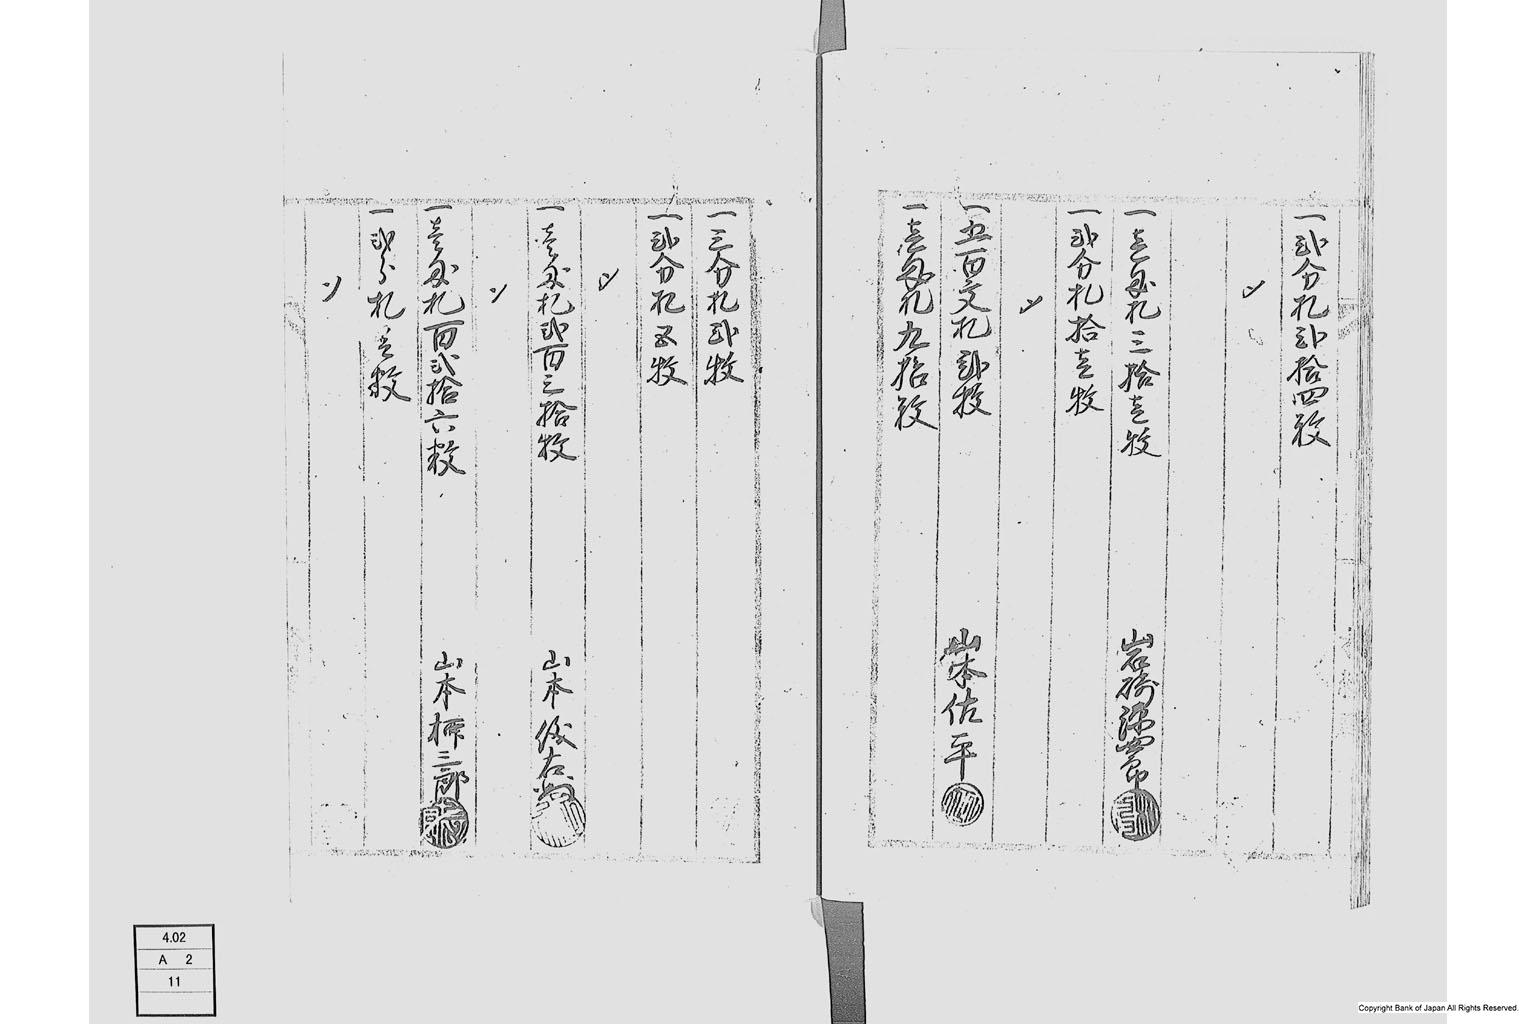 一弐分札弐拾四枚
一壱匁札三拾壱枚
岩崎
一弐分札拾壱枚
一五百文札弐枚
山本佐平
一壱匁札九拾枚
一三分札弐枚
一弐分札五枚
一壱匁札弐百三拾枚
山本
一壱匁札百弐拾六枚
山本柳三郎
一弐分札壱枚
4.02
A 2
11
Copyright Bank of Japan All Rights Reserved.